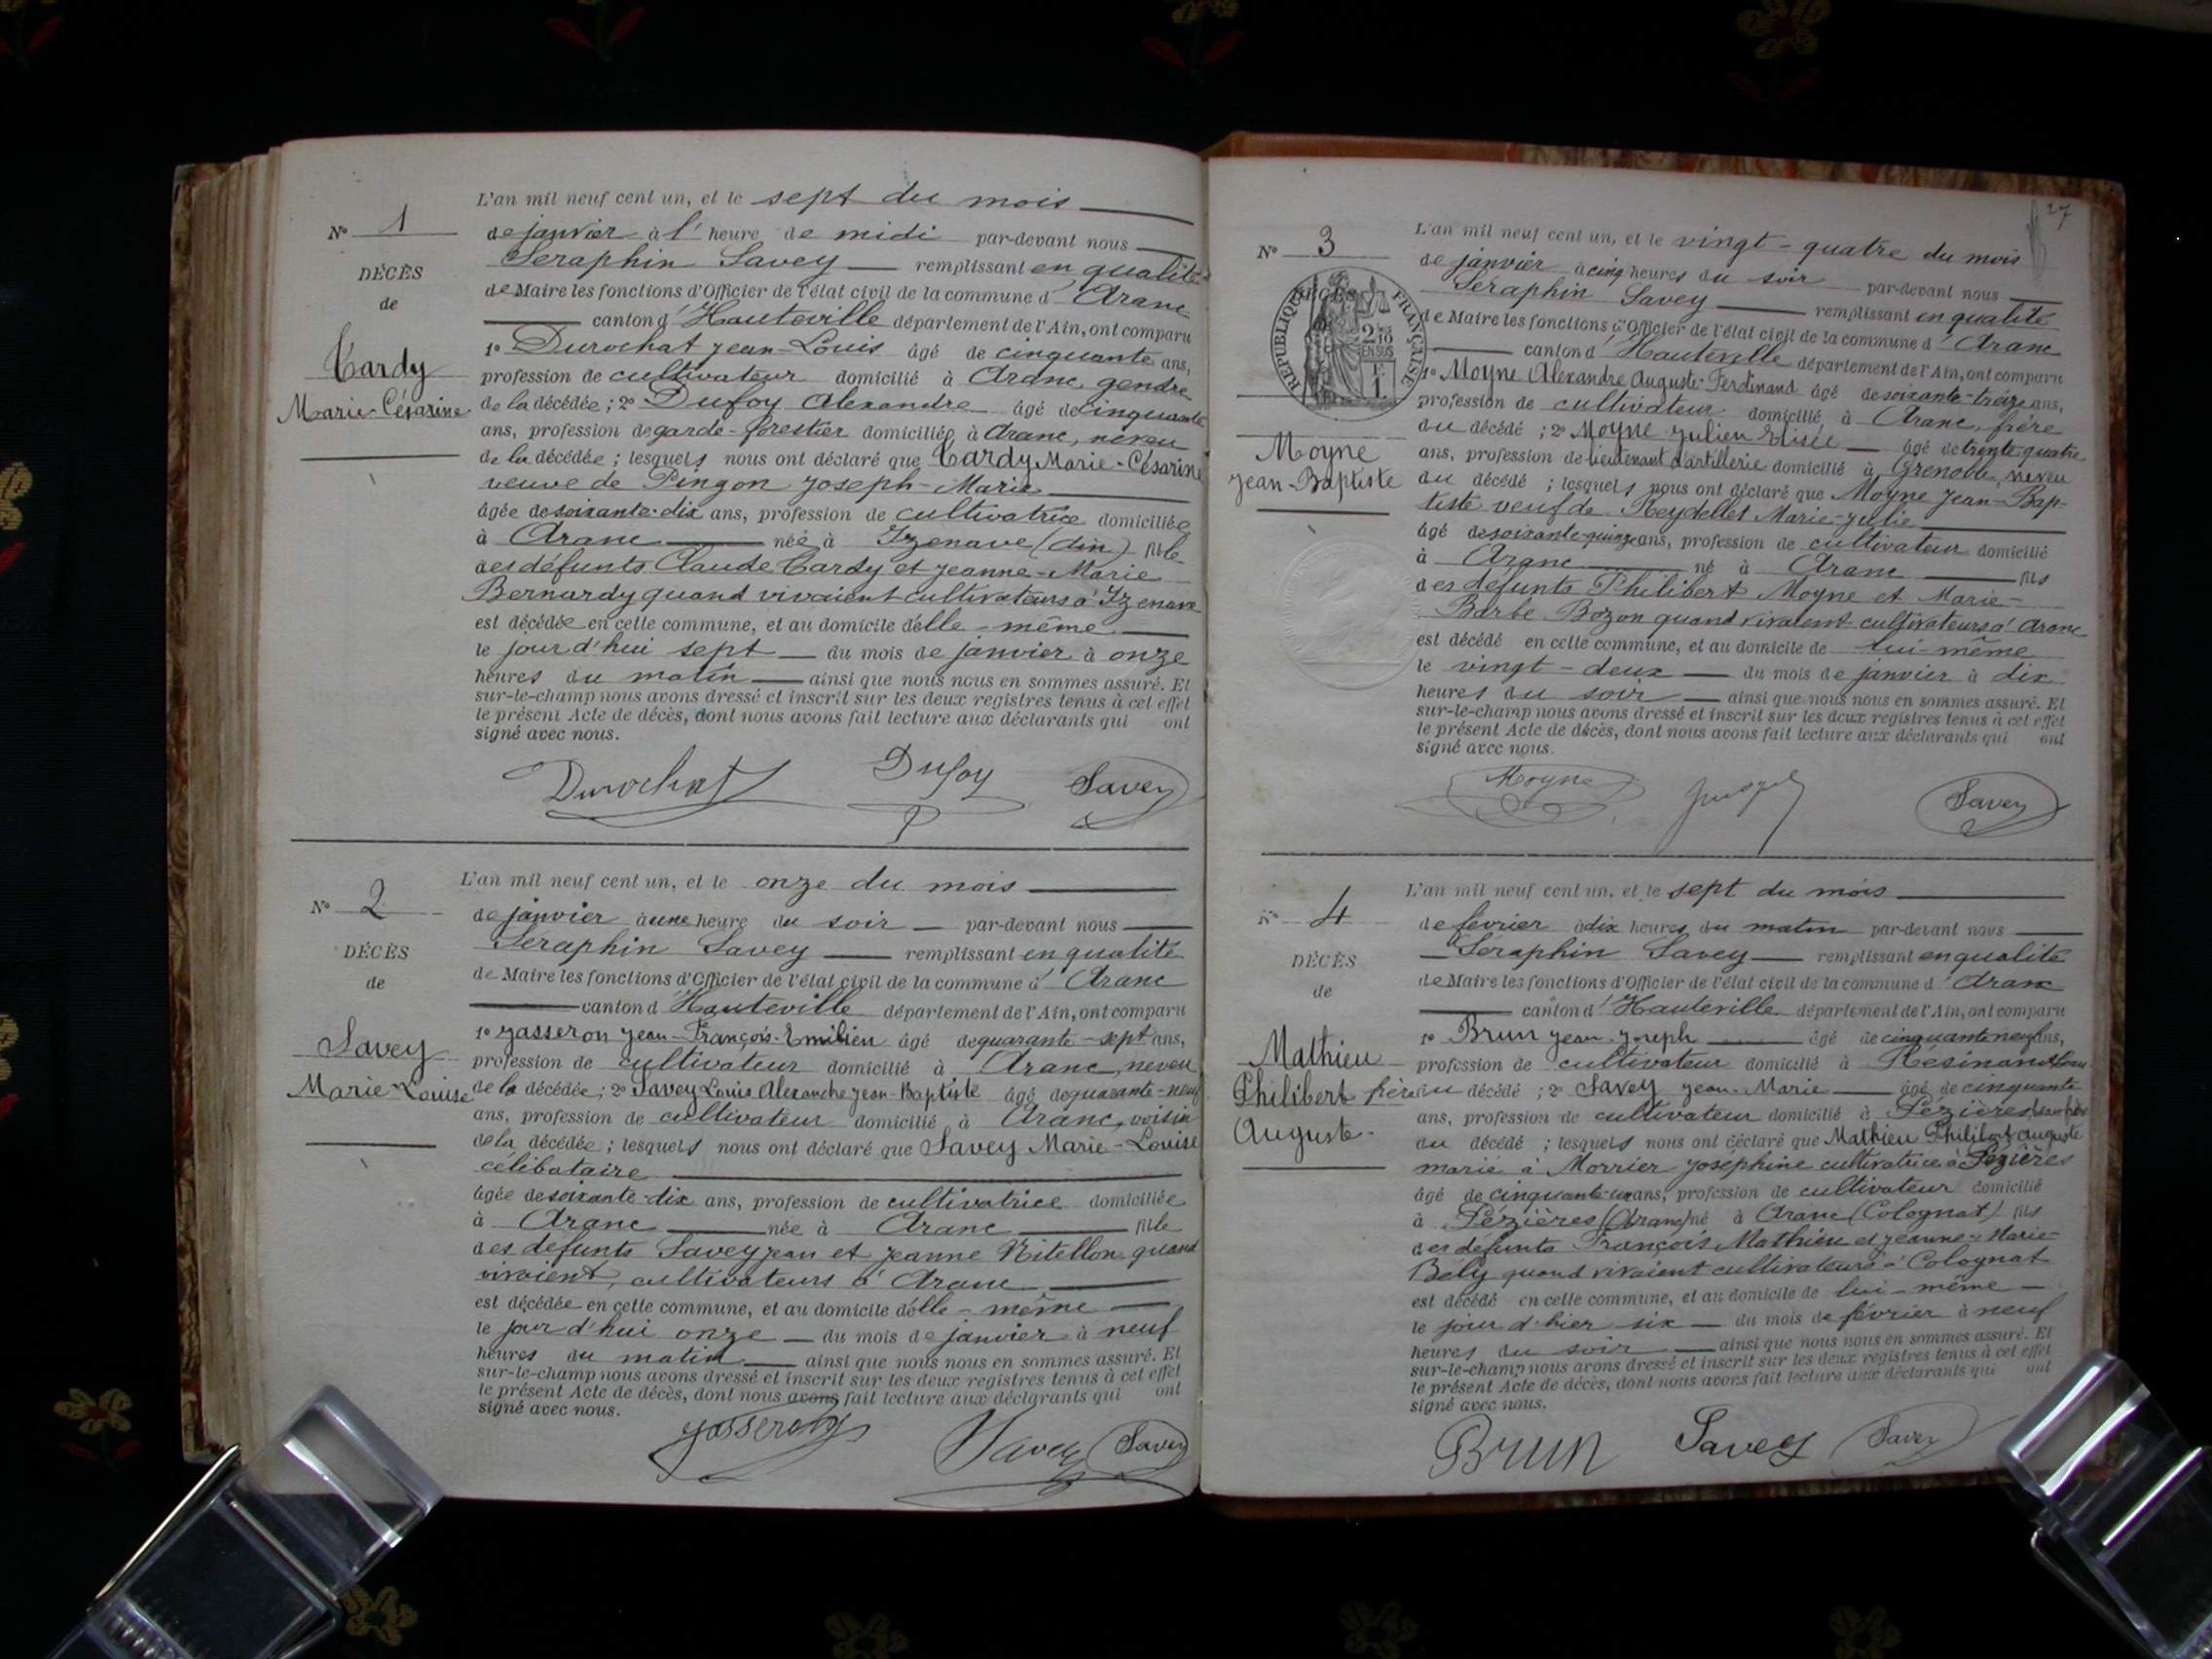 L'an mil neuf cent un, et le sept du mois
N° 1
de janvier à l'heure de midi par-devant nous
Seraphin Savey remplissant en qualité
DÉCÈS
de Maire les fonctions d'Officier de l'état civil de la commune d' Aranc
de
canton d' Hauteville département de l'Ain, ont comparu
1° Durochat Jean-Louis âgé de cinquante ans,
Tardy
profession de cultivateur domicilié à Aranc, gendre
Marie-Césarine
de la décédée ; 2° Dufoy Alexandre âgé de cinquante
ans, profession de garde-forestier domicilié à Aranc, neveu
de la décédée ; lesquels nous ont déclaré que Tardy Marie-Césarine
veuve de Pingon Joseph-Marie
âgée de soixante-dix ans, profession de cultivatrice domiciliée
à Aranc née à Izenave (Ain) fille
des défunts Claude Tardy et Jeanne-Marie
Bernardy quand vivaient cultivateurs à Izenave
est décédée en cette commune, et au domicile d'elle-même
le jour d'hui sept du mois de janvier à onze
heures du matin ainsi que nous nous en sommes assuré. Et
sur-le-champ nous avons dressé et inscrit sur les deux registres tenus à cet effet
le présent Acte de décès, dont nous avons fait lecture aux déclarants qui ont
signé avec nous.
Durochat Dufoy Savey
L'an mil neuf cent un, et le onze du mois
N° 2
de janvier à une heure du soir par-devant nous
Seraphin Savey remplissant en qualité
DÉCÈS
de Maire les fonctions d'Officier de l'état civil de la commune d' Aranc
de
canton d' Hauteville département de l'Ain, ont comparu
1° Jasseron Jean-François-Emilien âgé de quarante-sept ans,
Savey
profession de cultivateur domicilié à Aranc, neveu
Marie-Louise
de la décédée ; 2° Savey Louis Alexandre Jean-Baptiste âgé de quarante-neuf
ans, profession de cultivateur domicilié à Aranc, voisin
de la décédée ; lesquels nous ont déclaré que Savey Marie-Louise
célibataire
âgée de soixante-dix ans, profession de cultivatrice domiciliée
à Aranc née à Aranc fille
des défunts Savey Jean et Jeanne Nitellon quand
vivaient, cultivateurs à Aranc
est décédée en cette commune, et au domicile d'elle-même
le jour d'hui onze du mois de janvier à neuf
heures du matin ainsi que nous nous en sommes assuré. Et
sur-le-champ nous avons dressé et inscrit sur les deux registres tenus à cet effet
le présent Acte de décès, dont nous avons fait lecture aux déclarants qui ont
signé avec nous.
Jasseron Savey Savey
27
L'an mil neuf cent un, et le vingt-quatre du mois
N° 3
de janvier à cinq heures du soir par-devant nous
Séraphin Savey remplissant en qualité
DÉCÈS
RÉPUBLIQUE FRANÇAISE
2/10 EN SUS
1 F.
de Maire les fonctions d'Officier de l'état civil de la commune d' Aranc
canton d' Hauteville département de l'Ain, ont comparu
1° Moyne Alexandre Auguste-Ferdinand âgé de soixante-treize ans,
profession de cultivateur domicilié à Aranc, frère
du décédé ; 2° Moyne Julien Elisée âgé de trente quatre
Moyne
Jean-Baptiste
ans, profession de lieutenant d'artillerie domicilié à Grenoble, neveu
du décédé ; lesquels nous ont déclaré que Moyne Jean-Bap-
tiste veuf de Reydellet Marie-Julie
âgé de soixante-quinze ans, profession de cultivateur domicilié
à Aranc né à Aranc fils
des défunts Philibert Moyne et Marie-
Barbe Bozon quand vivaient cultivateurs à Aranc
est décédé en cette commune, et au domicile de lui-même
le vingt-deux du mois de janvier à dix
heures du soir ainsi que nous nous en sommes assuré. Et
sur-le-champ nous avons dressé et inscrit sur les deux registres tenus à cet effet
le présent Acte de décès, dont nous avons fait lecture aux déclarants qui ont
signé avec nous.
Moyne Savey
L'an mil neuf cent un, et le sept du mois
N° 4
de février à dix heures du matin par-devant nous
Seraphin Savey remplissant en qualité
DÉCÈS
de Maire les fonctions d'Officier de l'état civil de la commune d' Aranc
de
canton d' Hauteville département de l'Ain, ont comparu
1° Brun Jean-Joseph âgé de cinquante neuf ans,
Mathieu
Philibert
Auguste
profession de cultivateur domicilié à Résinand beau
frère du décédé ; 2° Savey Jean-Marie âgé de cinquante
ans, profession de cultivateur domicilié à Pézières beau frère
du décédé ; lesquels nous ont déclaré que Mathieu Philibert Auguste
marié à Morrier Joséphine cultivatrice à Pézières
âgé de cinquante-un ans, profession de cultivateur domicilié
à Pézières (Aranc) né à Aranc (Colognat) fils
des défunts François Mathieu et Jeanne-Marie
Bely quand vivaient cultivateurs à Colognat
est décédé en cette commune, et au domicile de lui-même
le jour d'hier six du mois de février à neuf
heures du soir ainsi que nous nous en sommes assuré. Et
sur-le-champ nous avons dressé et inscrit sur les deux registres tenus à cet effet
le présent Acte de décès, dont nous avons fait lecture aux déclarants qui ont
signé avec nous.
Brun Savey Savey